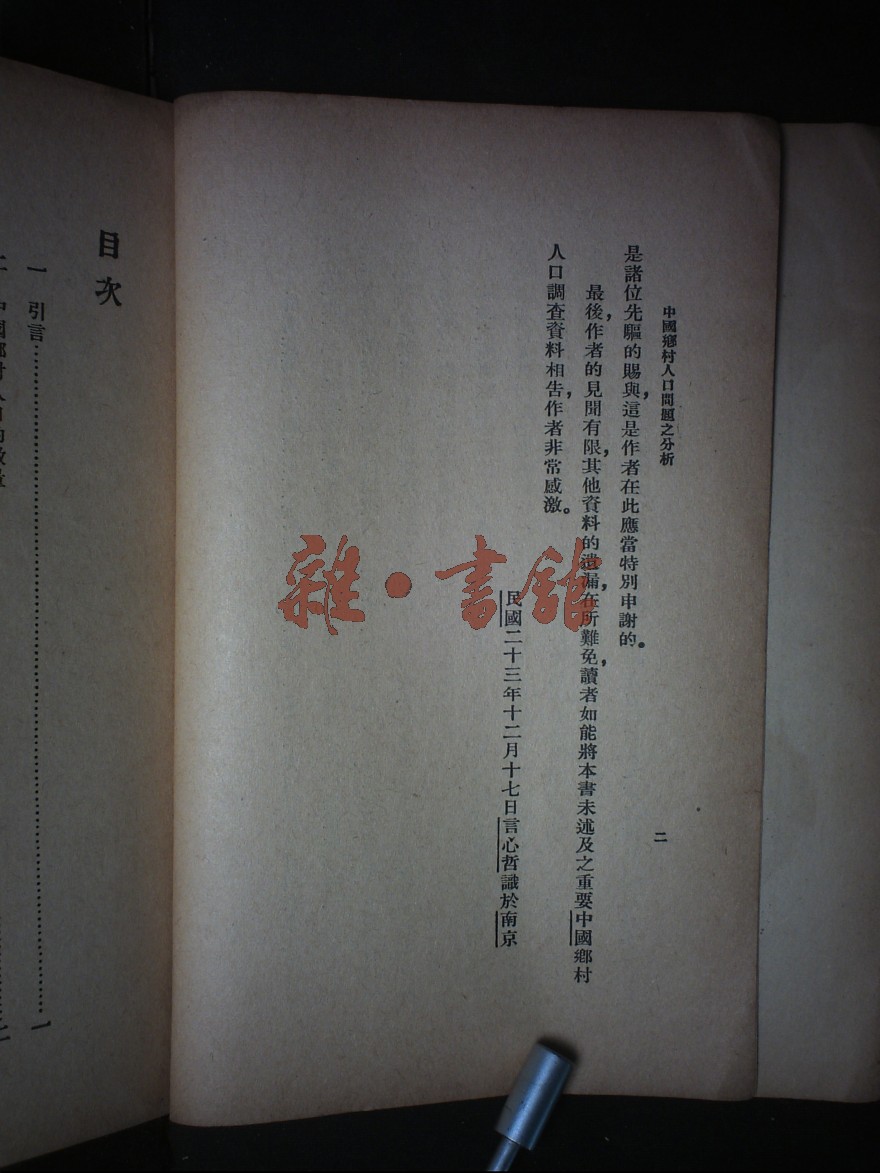 中國鄉村人口問題之分析
二
是諸位先驅的賜與，這是作者在此應當特別申謝的。
最後，作者的見聞有限，其他資料的遺漏，在所難免，讀者如能將本書未述及之重要中國鄉村
人口調查資料相告，作者非常感激。
民國二十三年十二月十七日言心哲識於南京
目次
一 引言⋯⋯⋯⋯⋯⋯⋯⋯⋯⋯⋯⋯⋯⋯⋯⋯⋯⋯一
二 中國鄉村人口的
雜·書館